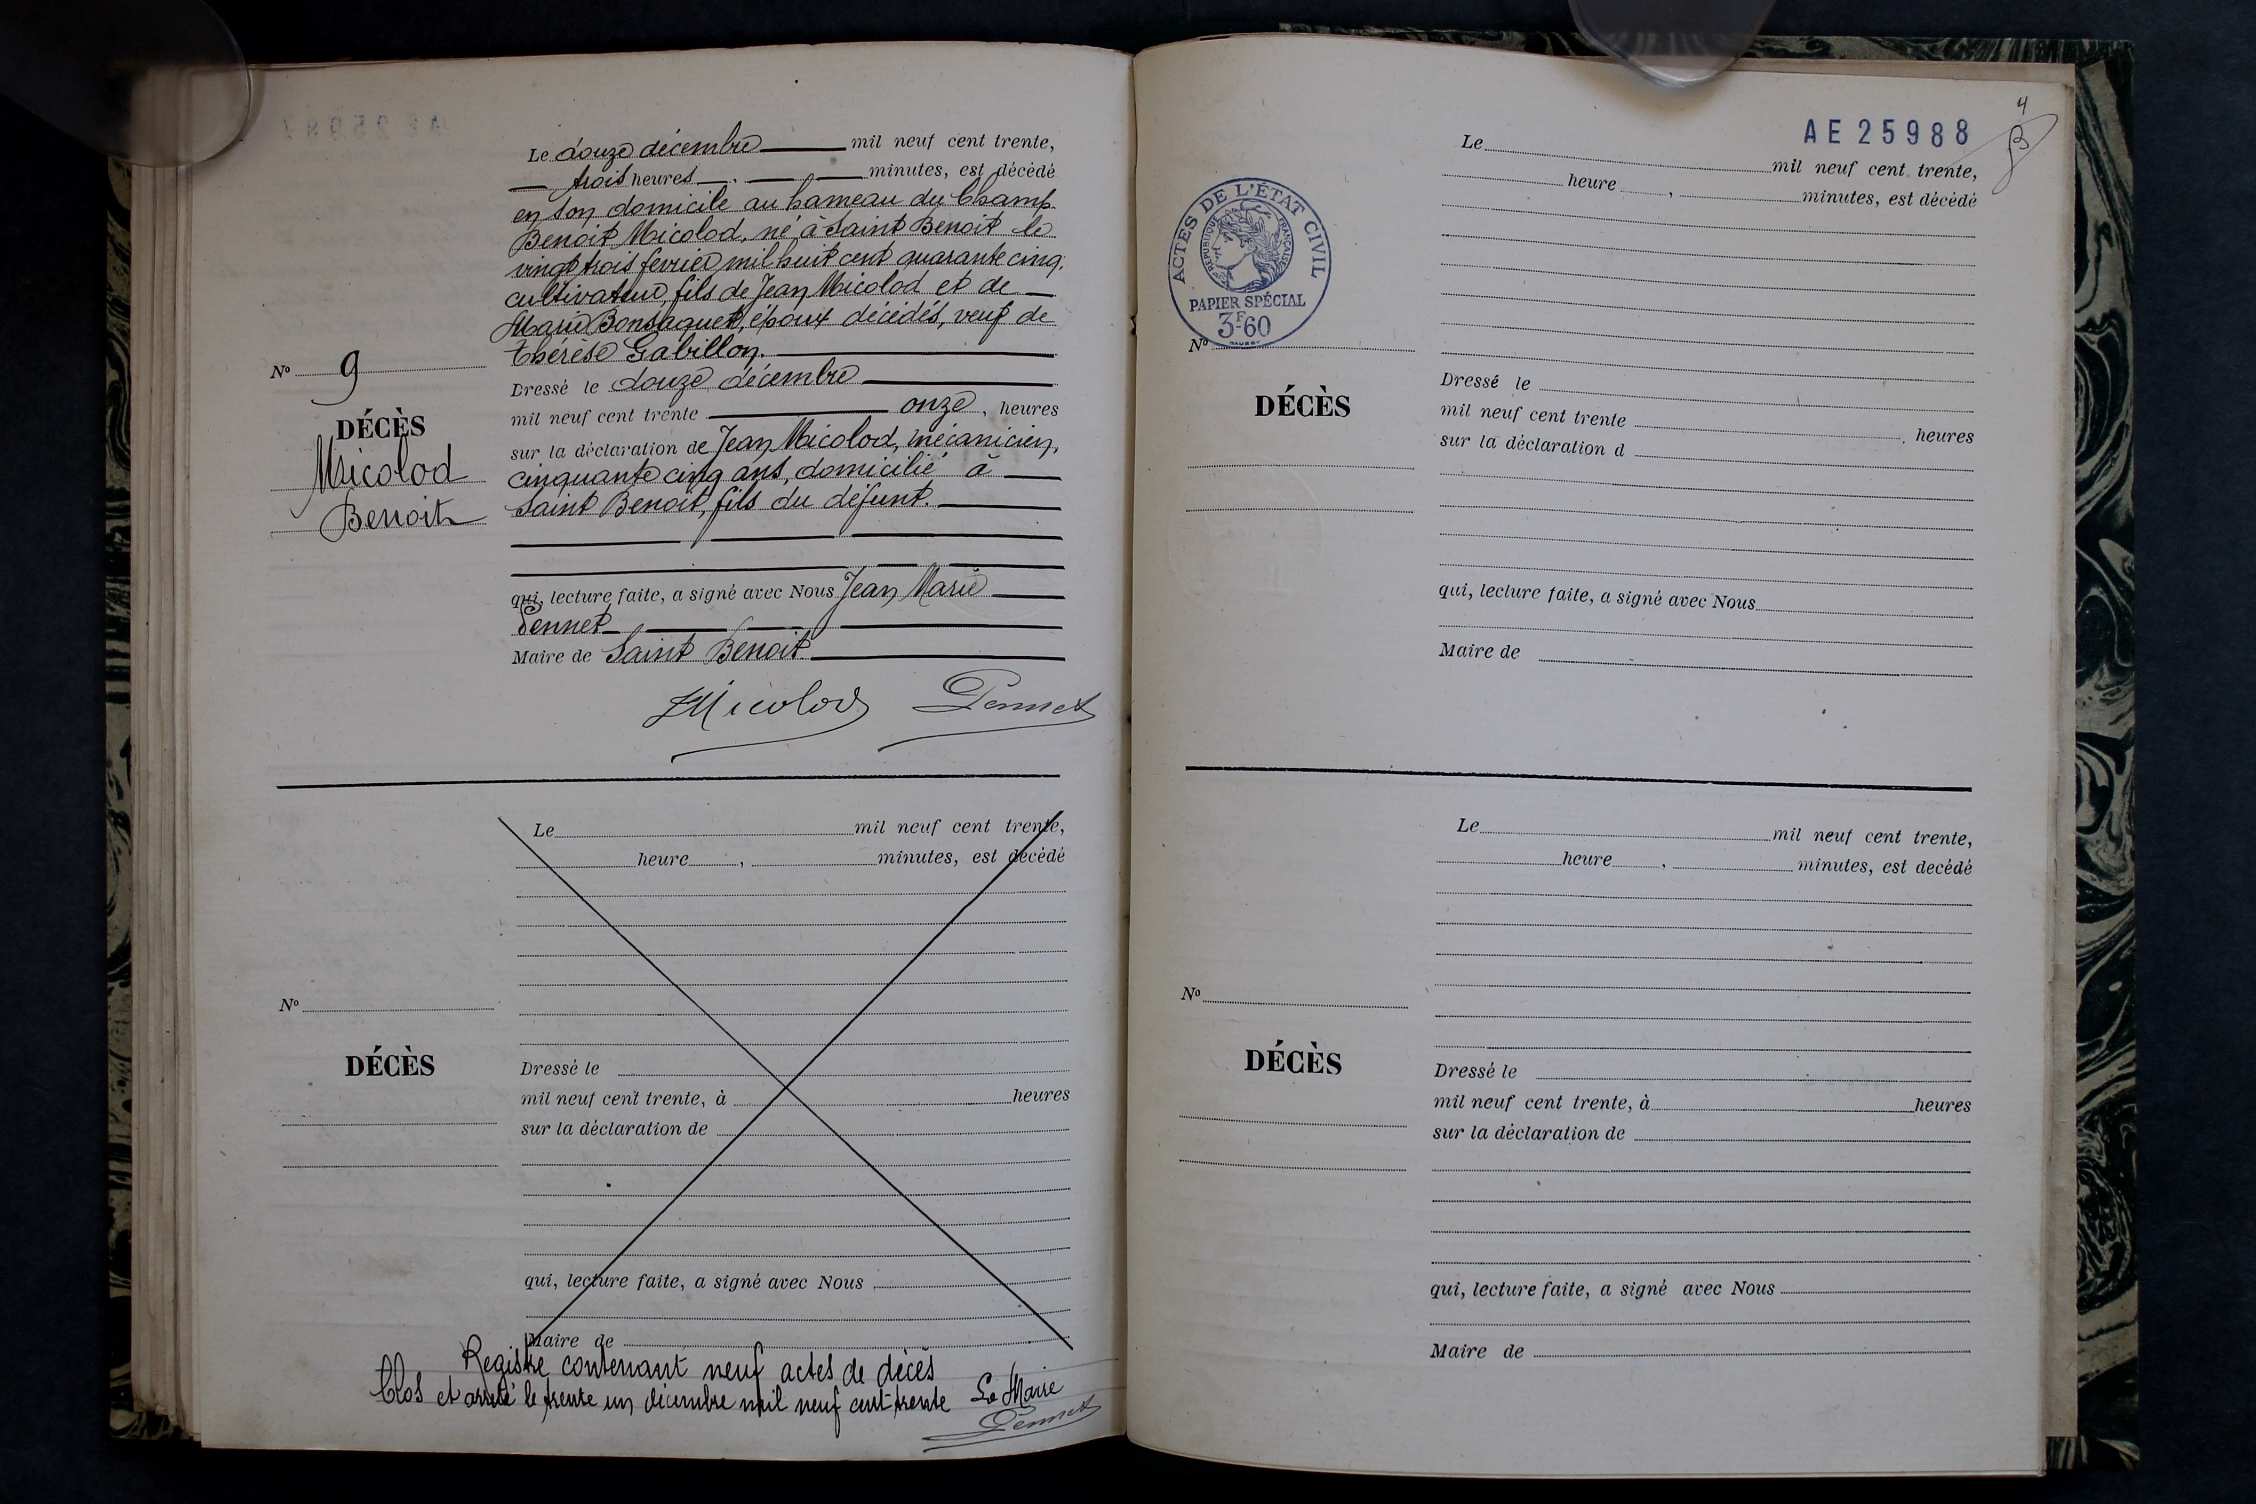 Le douze décembre mil neuf cent trente,
trois heures minutes, est décédé
en son domicile au hameau du Champ
Benoit Micolod, né à Saint Benoit le
vingt trois février mil huit cent quarante cinq,
cultivateur, fils de Jean Micolod et de
Marie Bonsaquet, époux décédés, veuf de
thérèse Gabillon.
Nº 9
DÉCÈS
Micolod
Benoit
Dressé le douze décembre
mil neuf cent trente onze, heures
sur la déclaration de Jean Micolod, mécanicien,
cinquante cinq ans, domicilié à
Saint Benoit, fils du défunt.
qui, lecture faite, a signé avec Nous Jean Marie
Pennet
Maire de Saint Benoit
JMicolod Pennet
Le mil neuf cent trente,
heure , minutes, est décédé
Nº
DÉCÈS
Dressé le
mil neuf cent trente, à heures
sur la déclaration de
qui, lecture faite, a signé avec Nous
Maire de
Registre contenant neuf actes de décès
Clos et arreté le trente un décembre mil neuf cent trente Le Maire
Pennet
4
AE 25988
Le mil neuf cent trente,
heure , minutes, est décédé
ACTES DE L'ÉTAT CIVIL
RÉPUBLIQUE FRANÇAISE
PAPIER SPÉCIAL
3F60
Nº
DÉCÈS
Dressé le
mil neuf cent trente , heures
sur la déclaration d
qui, lecture faite, a signé avec Nous
Maire de
Le mil neuf cent trente,
heure , minutes, est decédé
Nº
DÉCÈS
Dressé le
mil neuf cent trente, à heures
sur la déclaration de
qui, lecture faite, a signé avec Nous
Maire de